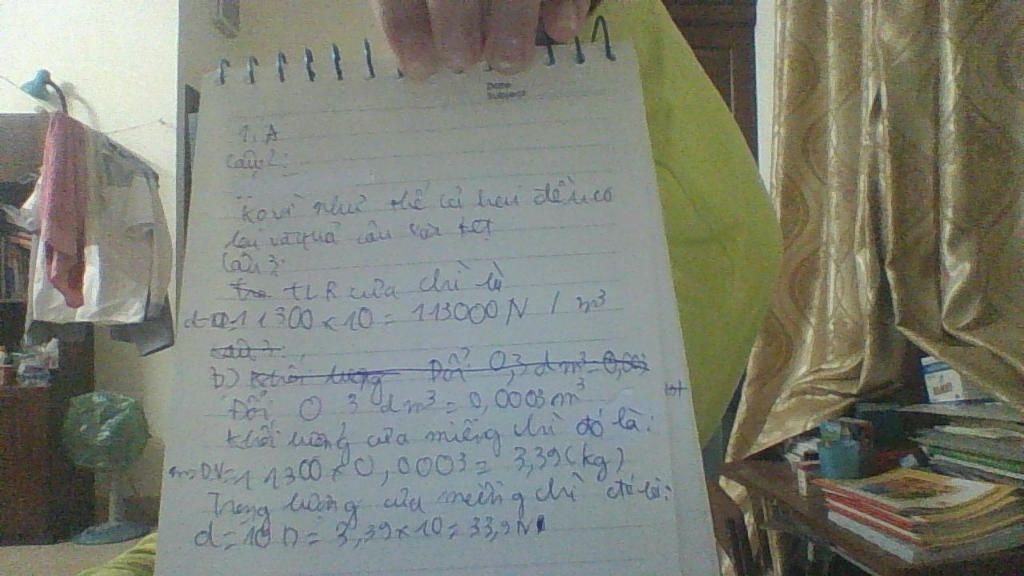 Date
Subject
1, A
Câu 2:
Ko vì như thế cả hai đều co
lại và quả cầu vẫn kẹt
Câu 3:
TLR của chì là
11300 × 10 = 113000 N / m³
b) Khối lượng Đổi 0,3 dm³ = 0,003
Đổi 0 3 dm³ = 0,0003 m³
Khối lượng của miếng chì đó là:
m=D.V=11300 × 0,0003 = 3,39 (kg)
Trọng lượng của miếng chì đó là:
d = 10 D = 3,39 × 10 = 33,9 N